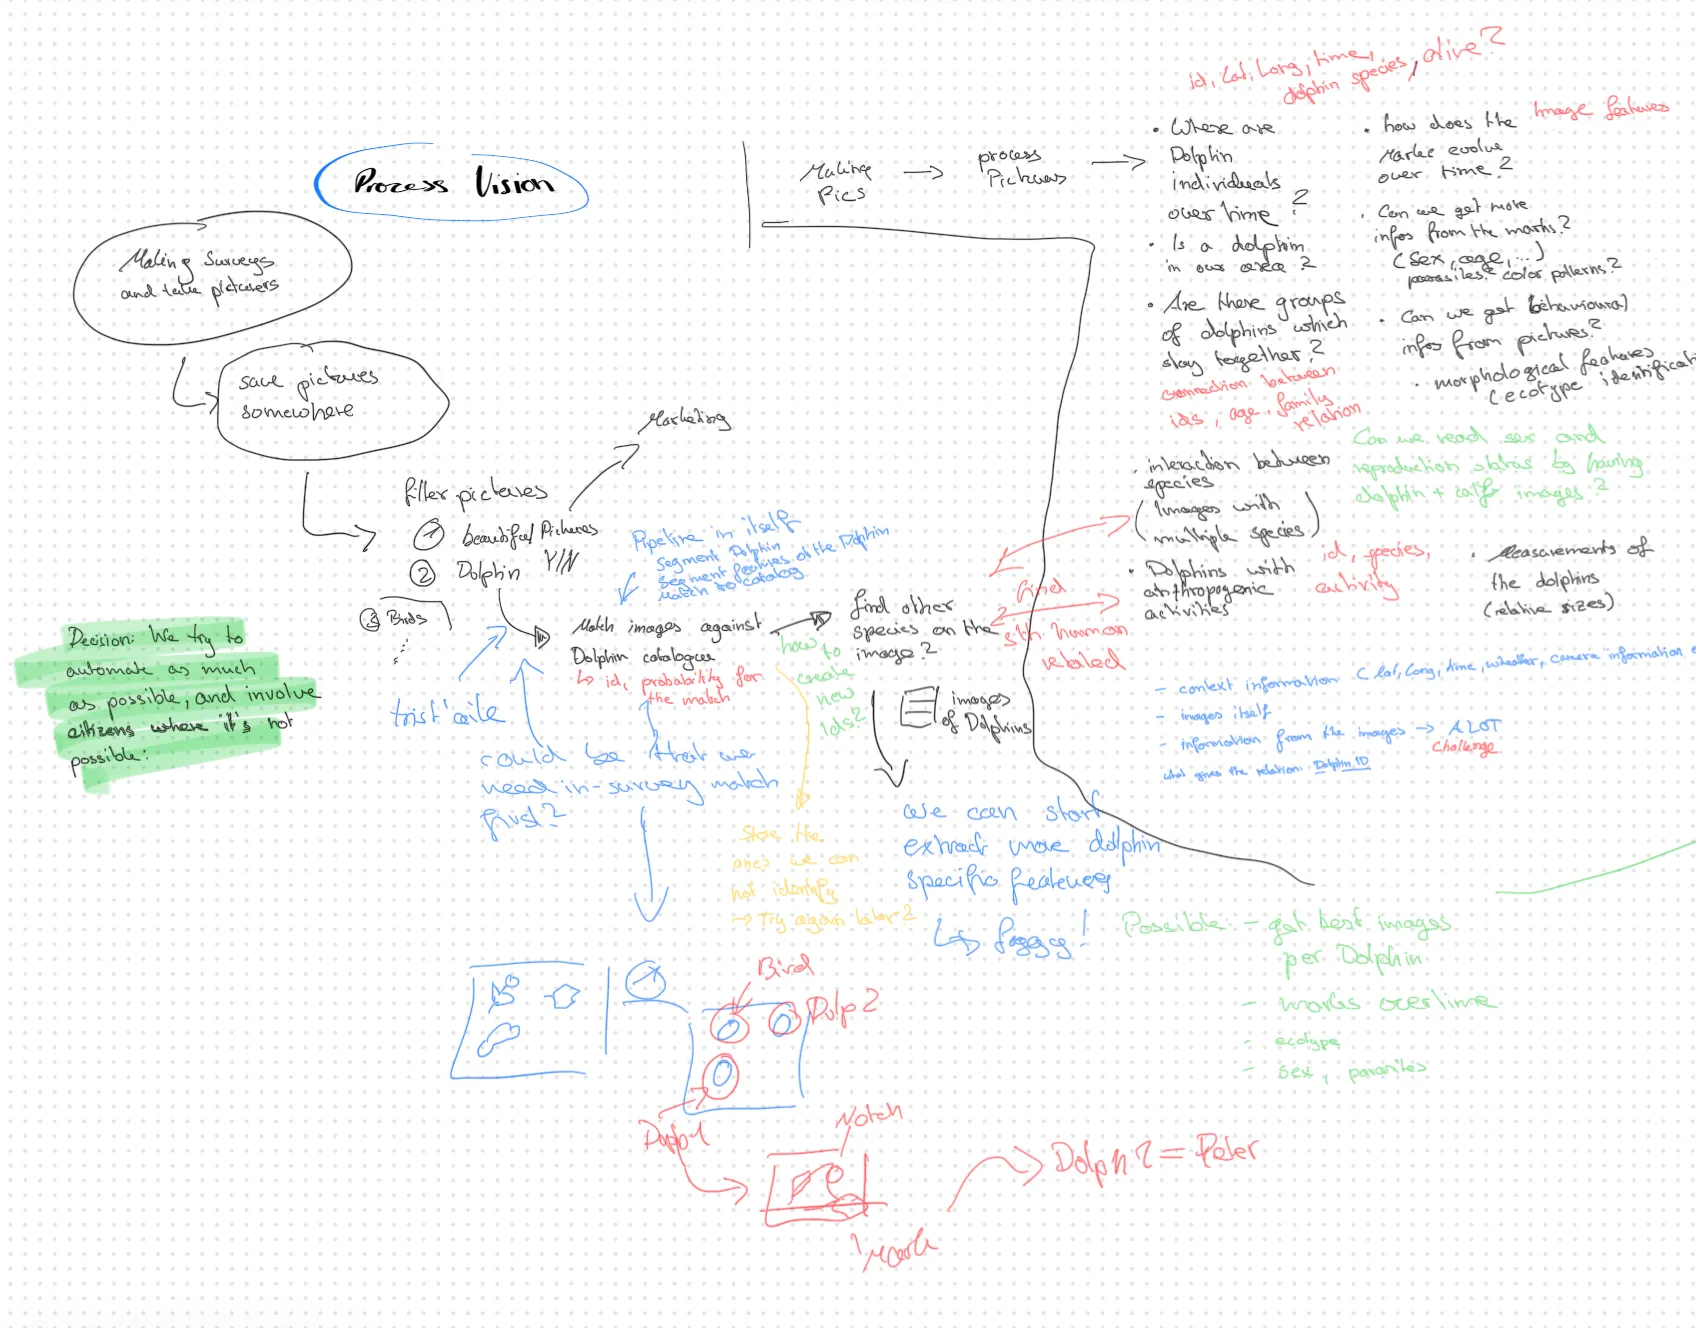 Process Vision
Making Surveys
and take picturers
save pictures
somewhere
Marketing
filter pictures
1 beautiful Pictures
2 Dolphin Y/N
3 Birds
Decision: We try to
automate as much
as possible, and involve
citizens where it's not
possible.
Pipeline in itself
Segment Dolphin
Segment features of the Dolphin
Match to catalog
Match images against
Dolphin catalogue
id, probability for
the match
how to
create
new
ids?
find other
species on the
image?
images
of Dolphins
could be that we
need in-survey match
first?
Store the
ones we can
not identify
→ Try again later?
we can start
extract more dolphin
specific features
Bird
Dolp 2
Notch
Dolph 2 = Peter
Making
Pics
→
process
Pictures
→
id, Lat, Long, time,
dolphin species, alive?
• Where are
Dolphin
individuals
over time?
• Is a dolphin
in our area?
• Are there groups
of dolphins which
stay together?
connection between
ids, age, family
relation
• interaction between
species
(Images with
multiple species)
• Dolphins with
anthropogenic
activities
id, species,
activity
find
sth human
related
• how does the
Image features
evolve
over time?
• Can we get more
infos from the marks?
(sex, age, ...)
parasites? color patterns?
• Can we get behavioural
infos from pictures?
• morphological features
(ecotype
Can we read sex and
reproduction status by having
dolphin + calf images?
• Measurements of
the dolphins
(relative sizes)
- context information (lat, long, time, weather, camera information
- images itself
- information from the images → A LOT
Challenge
what gives the relation: Dolphin ID
Possible: - get best images
per Dolphin
- marks overtime
- ecotype
- sex, parasites